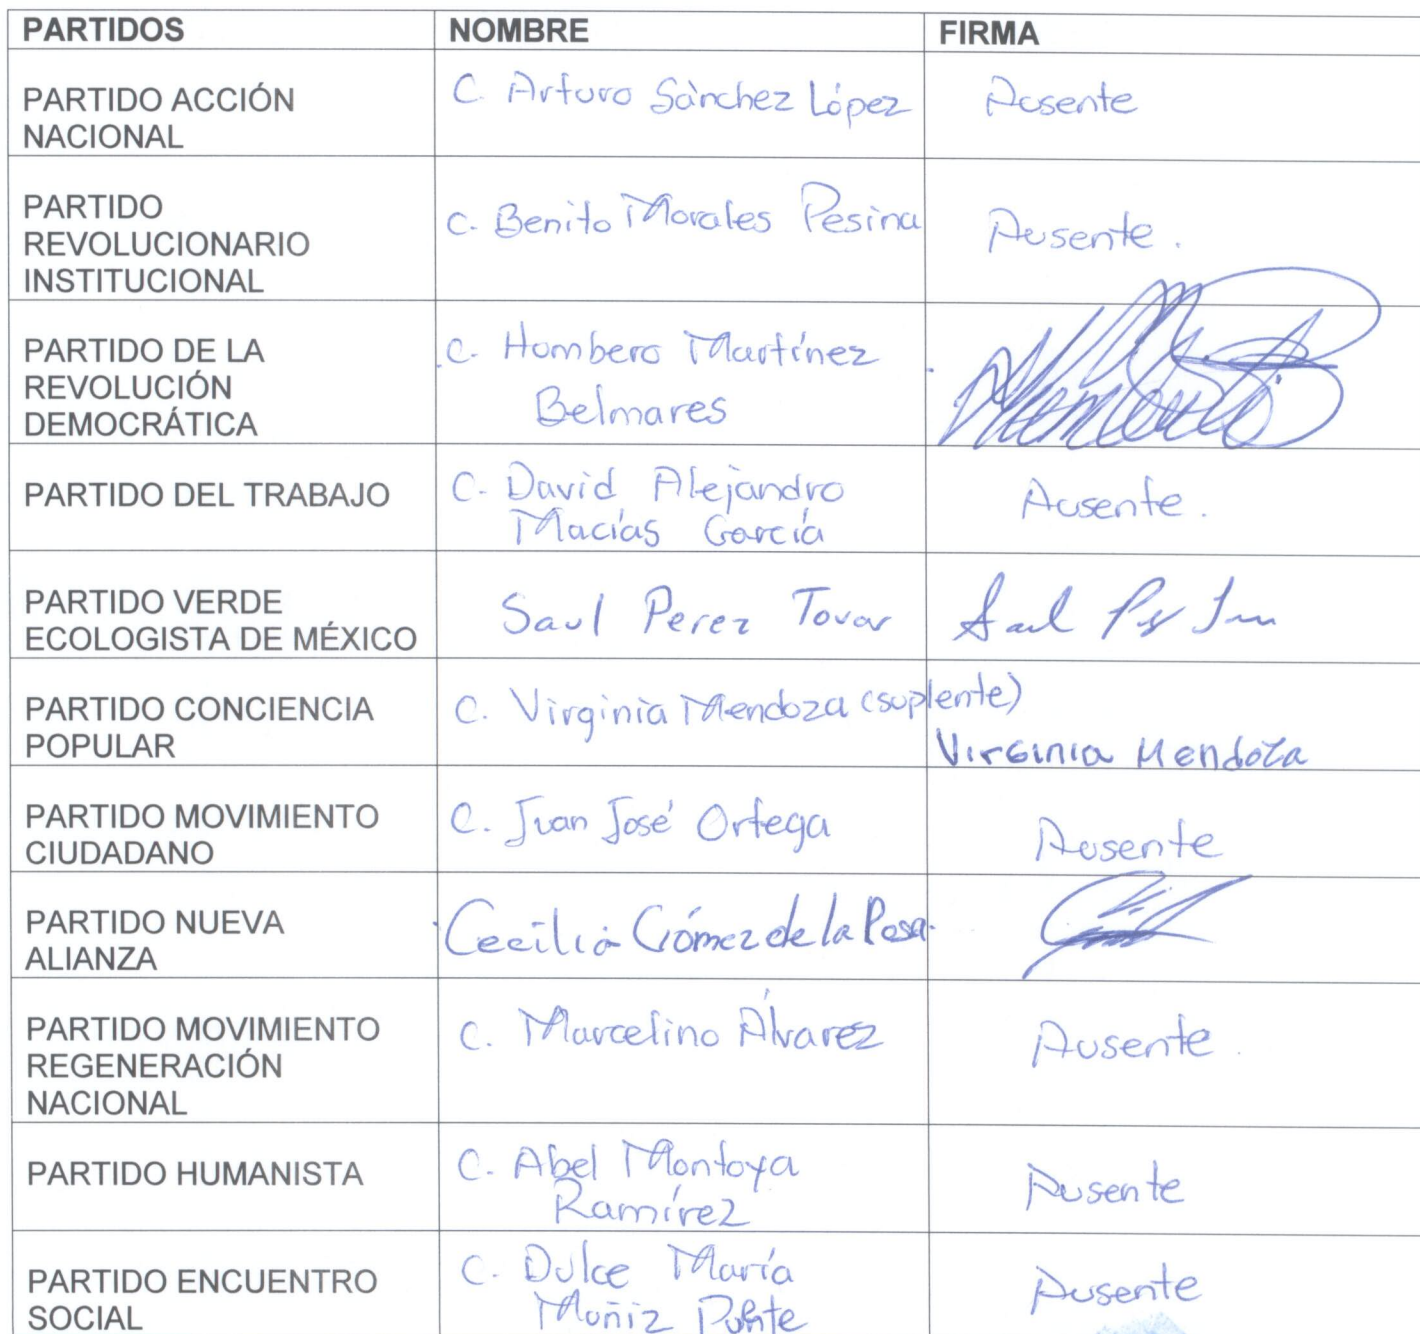 PARTIDOS NOMBRE FIRMA
PARTIDO ACCIÓN
NACIONAL
C. Arturo Sánchez López
Ausente
PARTIDO
REVOLUCIONARIO
INSTITUCIONAL
C. Benito Morales Pesina
Ausente.
PARTIDO DE LA
REVOLUCIÓN
DEMOCRÁTICA
C. Humbero Martínez
Belmares
PARTIDO DEL TRABAJO
C. David Alejandro
Macías García
Ausente.
PARTIDO VERDE
ECOLOGISTA DE MÉXICO
Saul Perez Tovar
PARTIDO CONCIENCIA
POPULAR
C. Virginia Mendoza (suplente)
Virginia Mendoza
PARTIDO MOVIMIENTO
CIUDADANO
C. Juan José Ortega
Ausente
PARTIDO NUEVA
ALIANZA
Cecilia Gómez de la
PARTIDO MOVIMIENTO
REGENERACIÓN
NACIONAL
C. Marcelino Álvarez
Ausente.
PARTIDO HUMANISTA
C. Abel Montoya
Ramírez
Ausente
PARTIDO ENCUENTRO
SOCIAL
C. Dulce María
Muñiz
Ausente